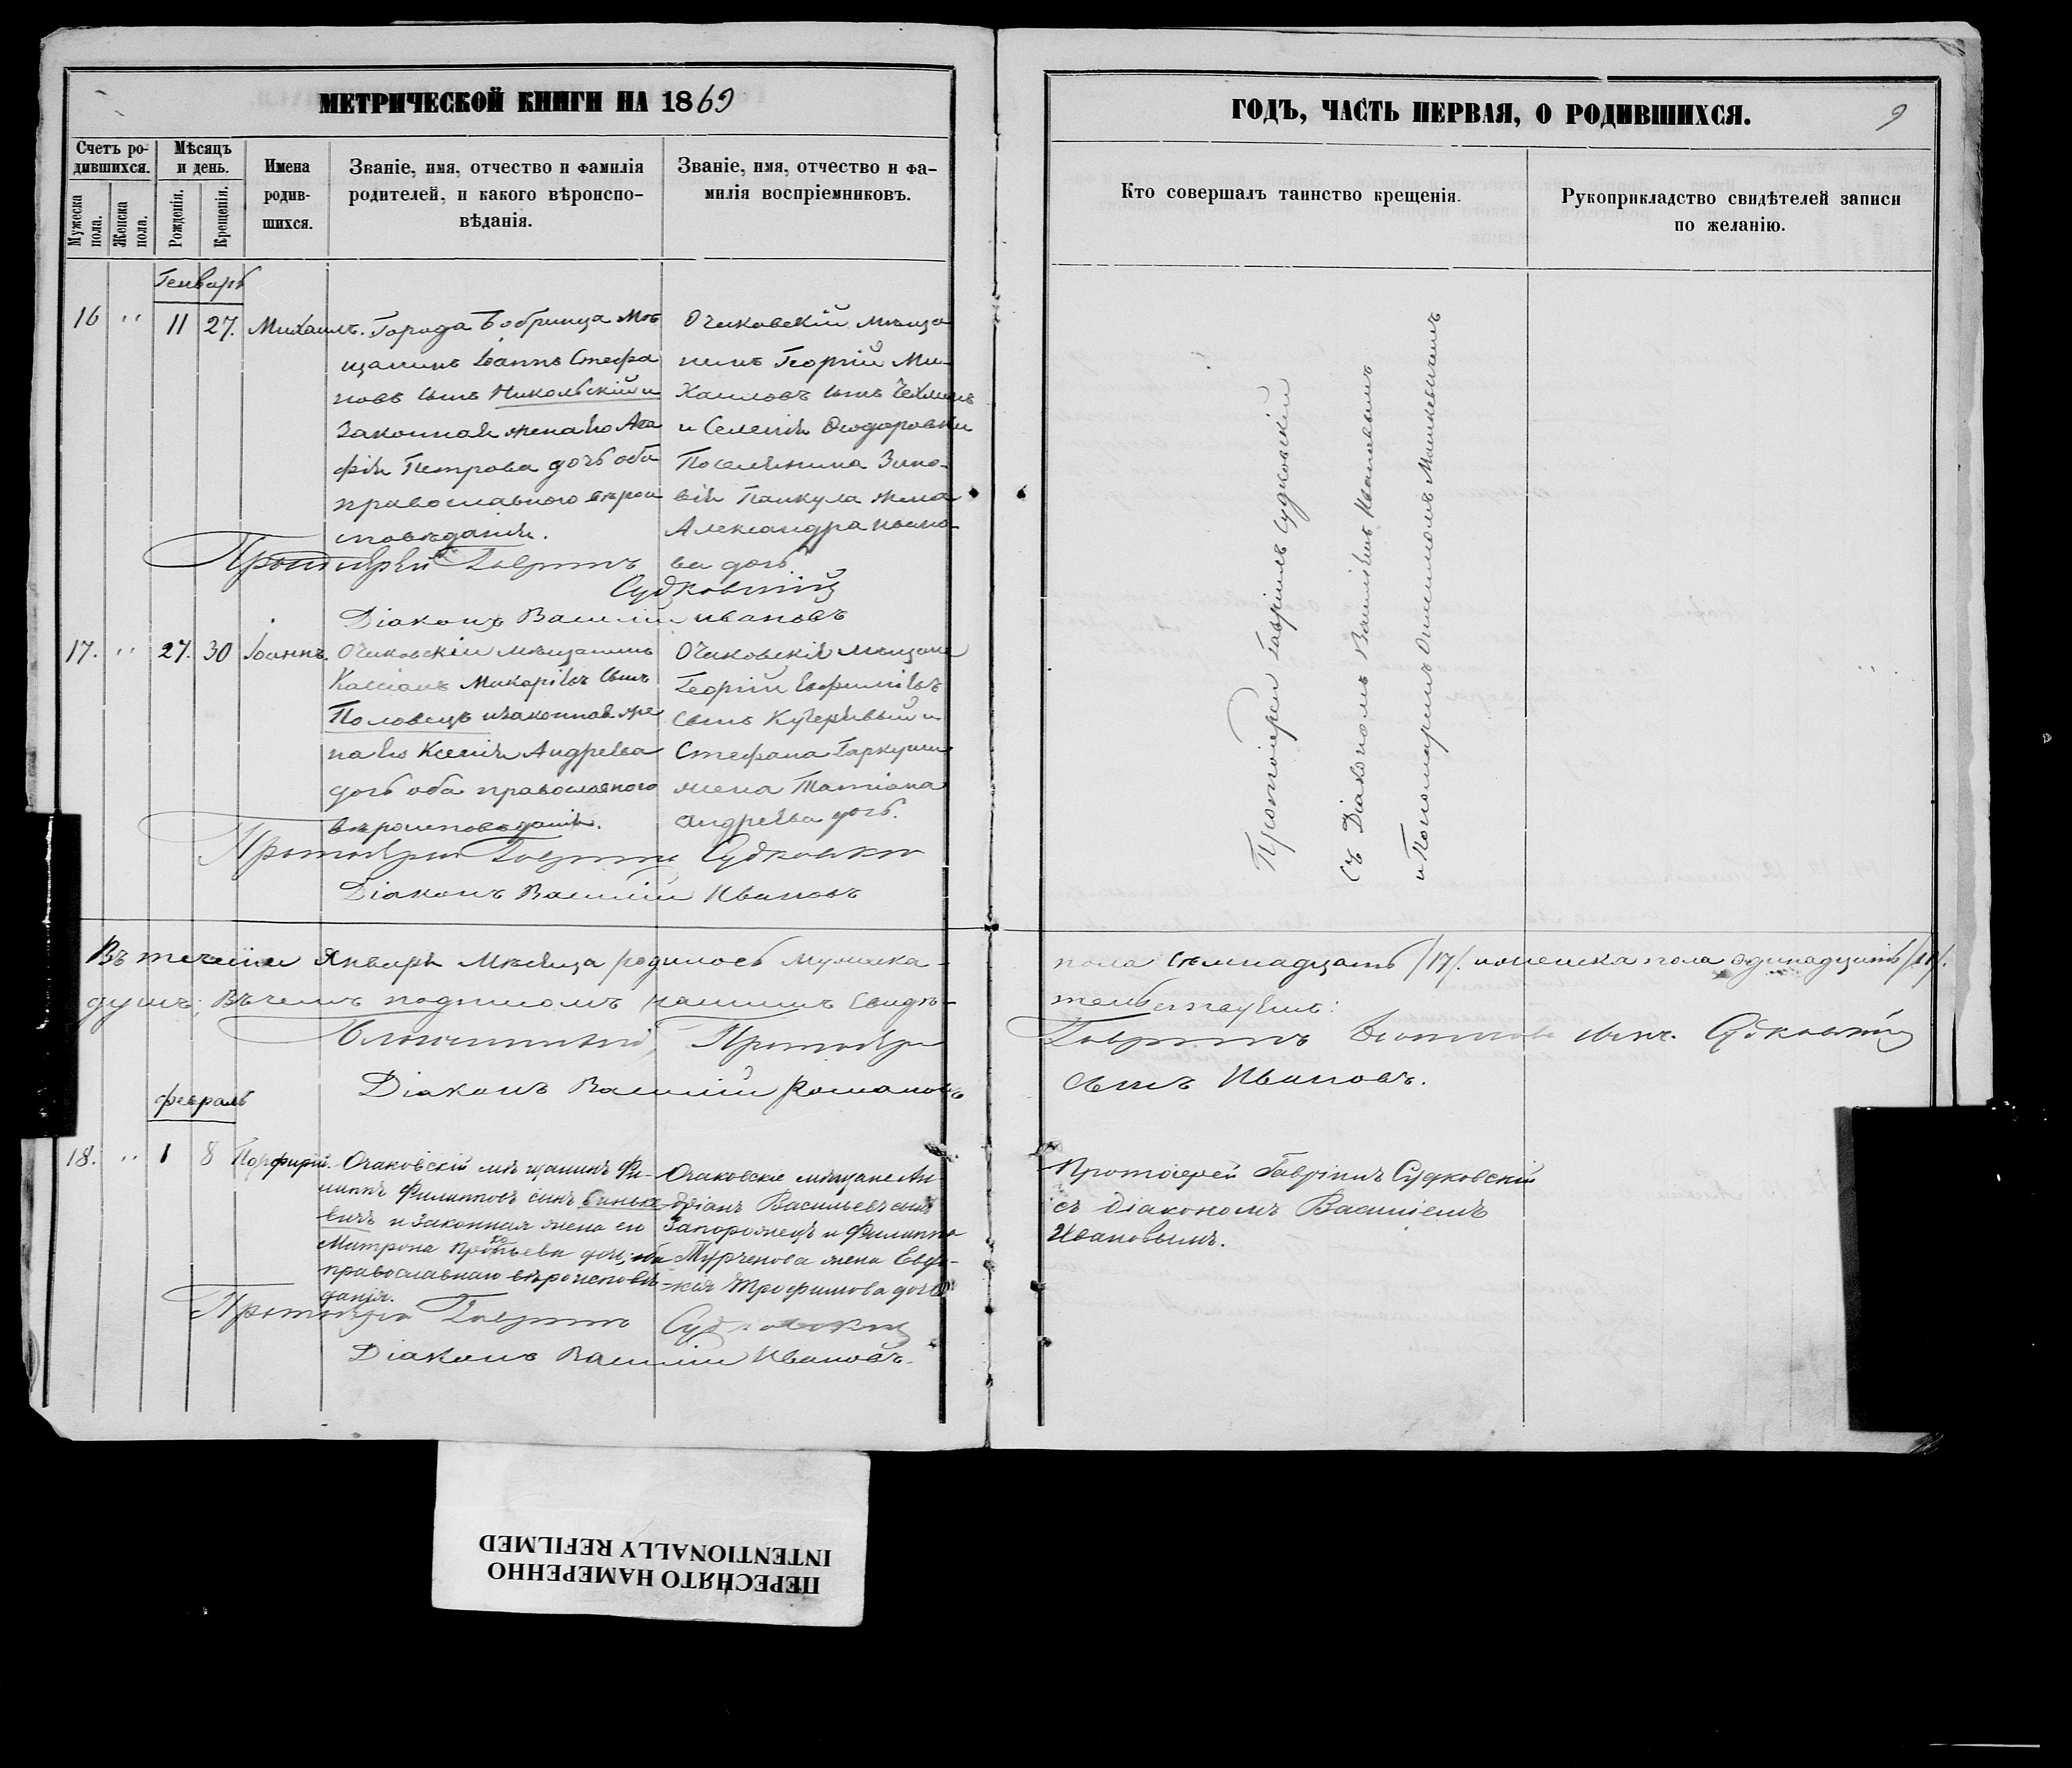 МЕТРИЧЕСКОЙ КНИГИ НА 1869
ГОДЪ, ЧАСТЬ ПЕРВАЯ, О РОДИВШИХСЯ.
9
Счетъ ро-
дившихся.
Мужеска пола.
Женска пола.
Мѣсяцъ
и день.
Рожденія.
Крещенія.
Имена
родив-
шихся.
Званіе, имя, отчество и фамилія
родителей, и какого вѣроиспо-
вѣданія.
Званіе, имя, отчество и фа-
милія воспріемниковъ.
Кто совершалъ таинство крещенія.
Рукоприкладство свидѣтелей записи
по желанію.
Генварь
16 " 11 27. Михаилъ.
Города Бобринца Мѣ
щанинъ Іоаннъ Стефа
новъ сынъ Никольскій и
Законная жена его Ага
фія Петрова дочь оба
православнаго вѣрои
сповѣданія.
Очаковскій мѣща
нинъ Георгій Ми-
хаиловъ сынъ
и
Поселянина Зино-
вія Панкула жена
Александра Ивано-
ва дочь
Протоіерей Гавріилъ
Судковскій
Діаконъ Василій Ивановъ
17. " 27. 30 Іоаннъ.
Очаковскій мѣщанинъ
Кассіанъ Макаріевъ сынъ
Половецъ и законная же
на его Ксенія Андреева
дочь оба православнаго
вѣроисповѣданія.
Очаковскія мѣщане
Георгій Евфиміевъ
сынъ Кучерявый и
Стефана Гаркуши
жена Татіана
Андреева дочь.
Протоіерей Гавріилъ Судковскій
Діаконъ Василій Ивановъ
Протоіерей Гавріилъ Судковскій
съ Діакономъ Василіемъ Ивановымъ
и Пономаремъ Мышкевичемъ
Въ теченіи Января Мѣсяца родилось мужеска-
пола семнадцать /17/. и женска пола одинадцать /11/.
душъ; Въ чемъ подписомъ нашимъ Свидѣ-
тельствуемъ:
Протоіерей
Гавріилъ сынъ Судковскій
Діаконъ Василій Романовъ
сынъ Ивановъ.
февраль
18. " 1 8 Порфирій.
Очаковскій мѣщанинъ Фи-
липпъ Филипповъ сынъ Синьке
вичъ и законная жена его
Матрона дочь, оба
православнаго вѣроисповѣ-
данія.
Очаковскіе мѣщане Ан-
дріанъ Васильевъ сынъ
Запорожецъ и Филиппа
Турченова жена Евдо-
кія Трофимова дочь
Протоіерей Гавріилъ Судковскій
Діаконъ Василій Ивановъ.
Протоіерей Гавріилъ Судковскій
съ діакономъ Василіемъ
Ивановымъ.
ПЕРЕСНЯТО НАМЕРЕННО
INTENTIONALLY REFILMED